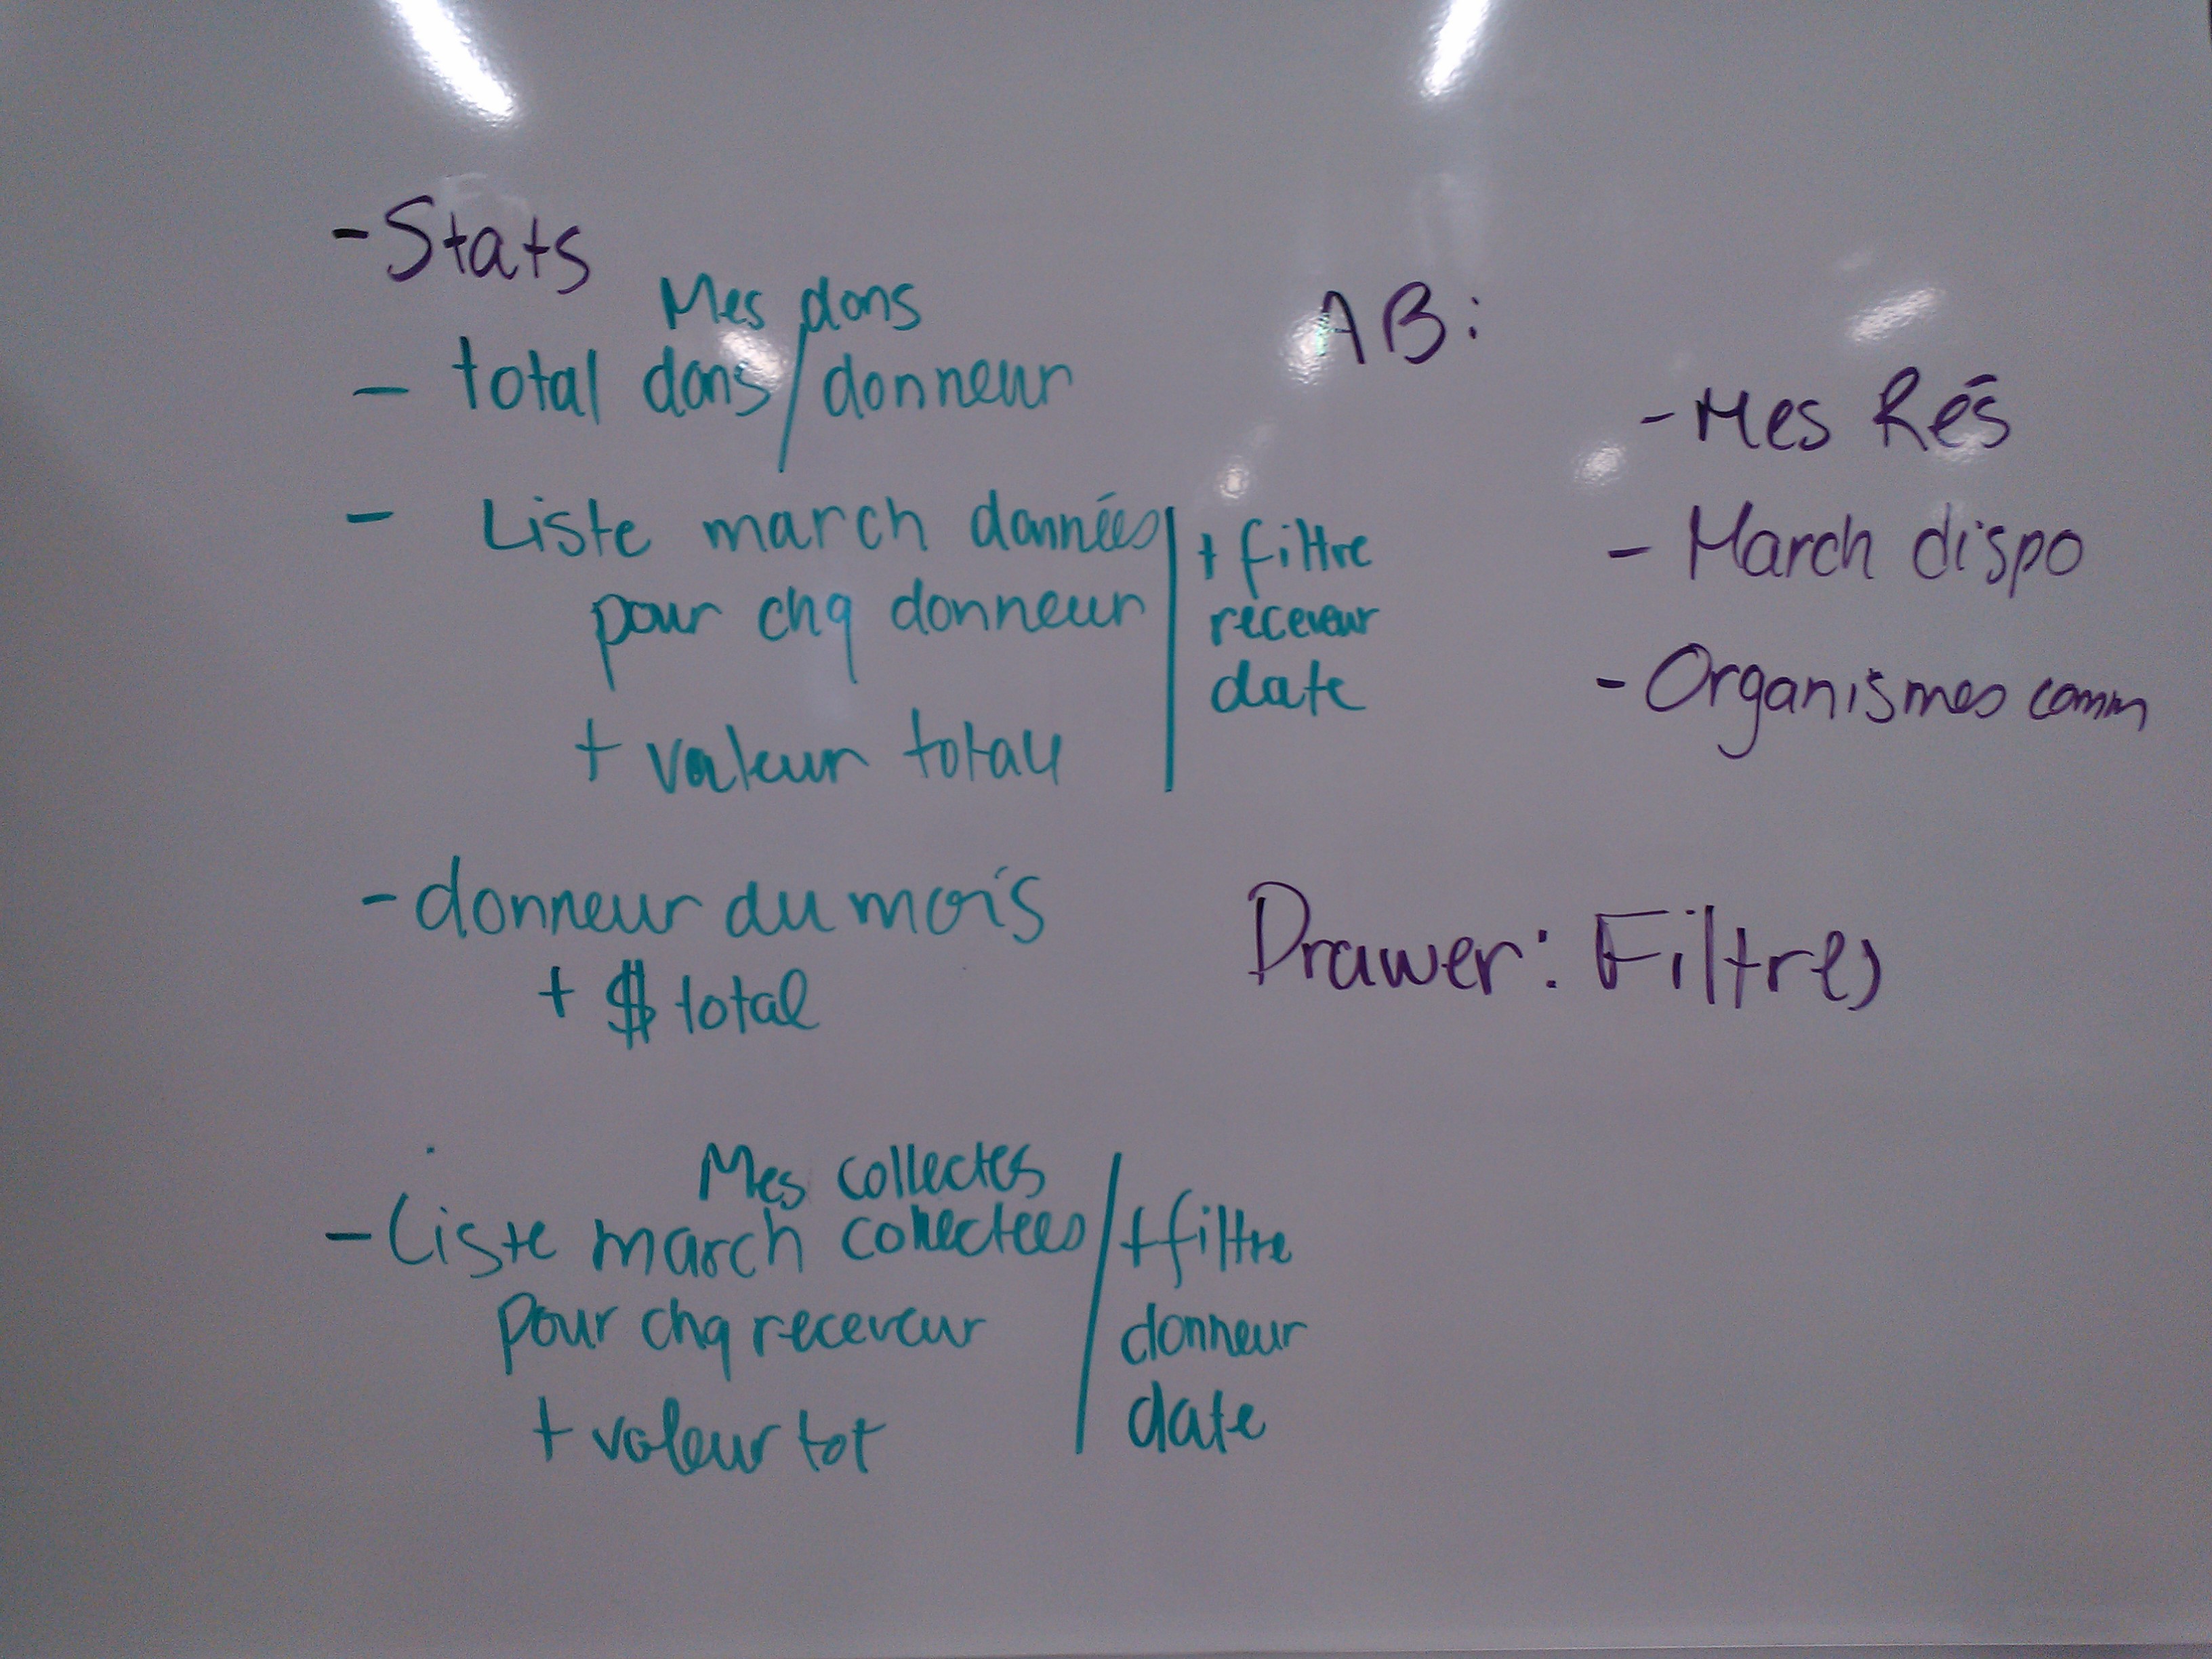 - Stats
Mes dons
- total dons / donneur
- Liste march données
pour chq donneur
+ valeur totale
+ filtre
receveur
date
- donneur du mois
+ $ total
Mes collectes
- Liste march collectées
pour chq receveur
+ valeur tot
+ filtre
donneur
date
AB:
- Mes Rés
- March dispo
- Organismes comm
Drawer: Filtres